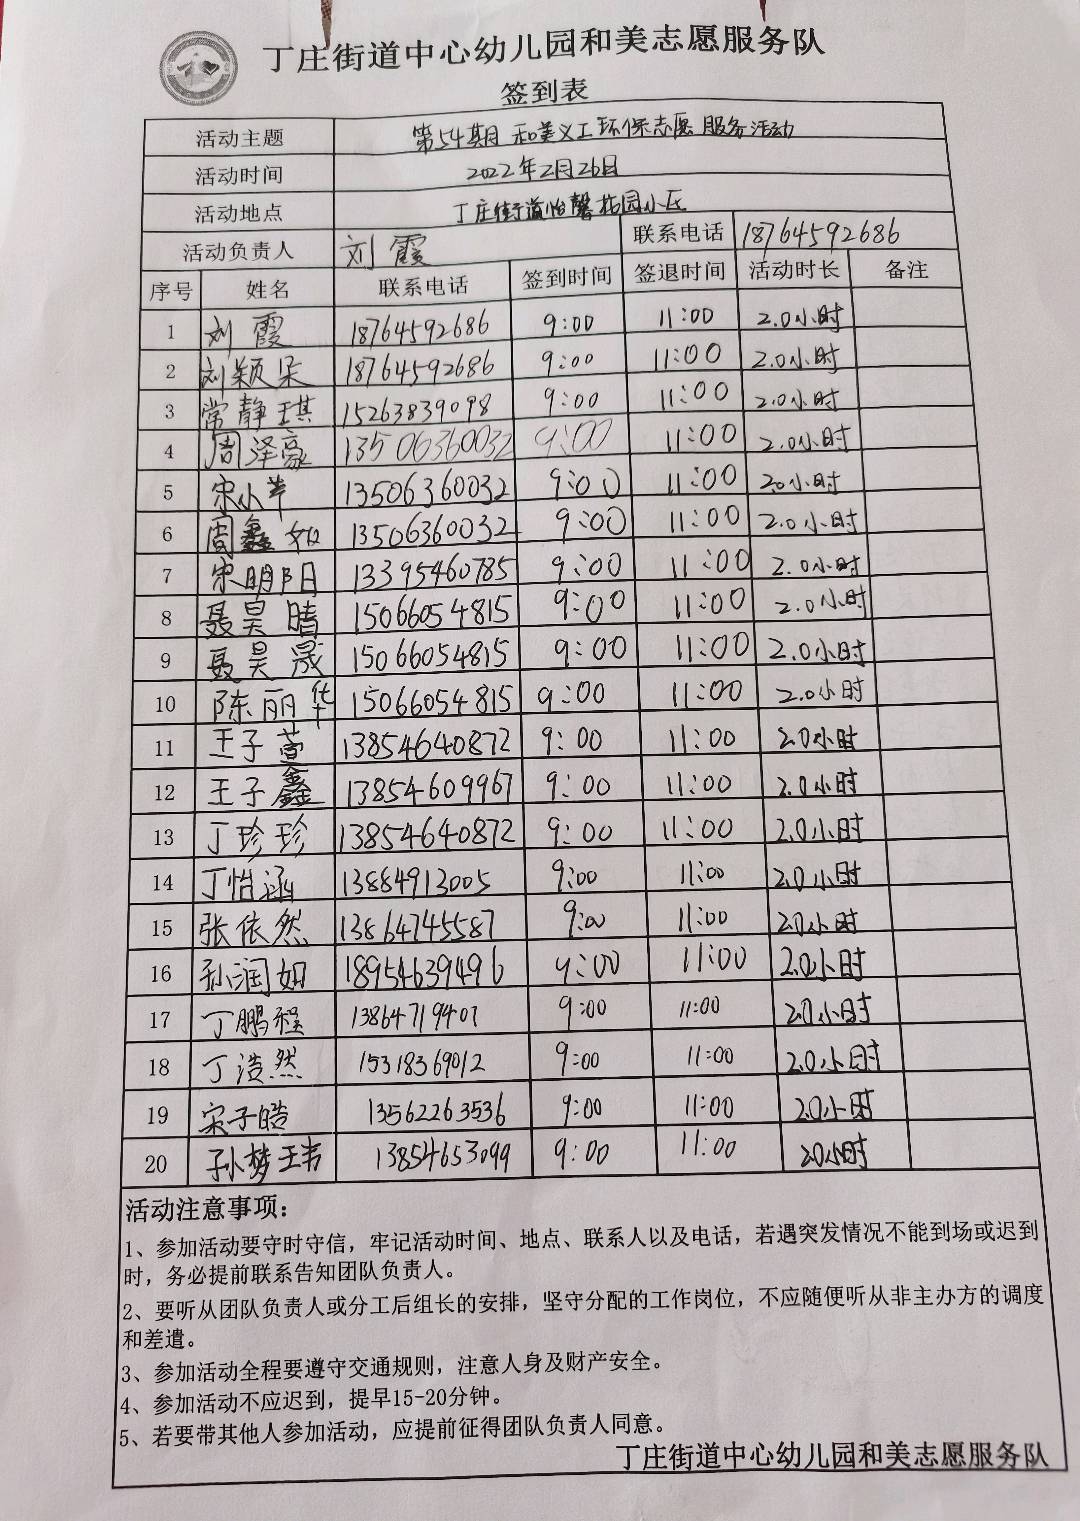 丁庄街道中心幼儿园和美志愿服务队
签到表
活动主题 第54期 和美义工环保志愿服务活动
活动时间 2022年2月26日
活动地点 丁庄街道怡馨花园小区
活动负责人 刘霞 联系电话 18764592686
序号 姓名 联系电话 签到时间 签退时间 活动时长 备注
1 刘霞 18764592686 9:00 11:00 2.0小时
2 刘颖 18764592686 9:00 11:00 2.0小时
3 常静琪 15263839098 9:00 11:00 2.0小时
4 周泽豪 13506360032 9:00 11:00 2.0小时
5 宋小苹 13506360032 9:00 11:00 2.0小时
6 周鑫如 13506360032 9:00 11:00 2.0小时
7 宋明阳 13395460785 9:00 11:00 2.0小时
8 聂昊晴 15066054815 9:00 11:00 2.0小时
9 聂昊晟 15066054815 9:00 11:00 2.0小时
10 陈丽华 15066054815 9:00 11:00 2.0小时
11 王子萱 13854640872 9:00 11:00 2.0小时
12 王子鑫 13854609967 9:00 11:00 2.0小时
13 丁珍珍 13854640872 9:00 11:00 2.0小时
14 丁怡涵 13884913005 9:00 11:00 2.0小时
15 张依然 13864745587 9:00 11:00 2.0小时
16 孙润如 18954639496 9:00 11:00 2.0小时
17 丁鹏程 13864719407 9:00 11:00 2.0小时
18 丁浩然 15318369012 9:00 11:00 2.0小时
19 宋子皓 13562263536 9:00 11:00 2.0小时
20 孙梦玮 13854653099 9:00 11:00 2.0小时
活动注意事项：
1、参加活动要守时守信，牢记活动时间、地点、联系人以及电话，若遇突发情况不能到场或迟到
时，务必提前联系告知团队负责人。
2、要听从团队负责人或分工后组长的安排，坚守分配的工作岗位，不应随便听从非主办方的调度
和差遣。
3、参加活动全程要遵守交通规则，注意人身及财产安全。
4、参加活动不应迟到，提早15-20分钟。
5、若要带其他人参加活动，应提前征得团队负责人同意。
丁庄街道中心幼儿园和美志愿服务队